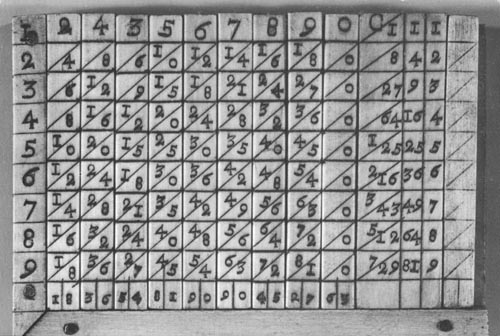 1 2 4 3 5 6 7 8 9 0 C1 1 1
2 4 8 6 10 12 14 16 18 0 8 4 2
3 6 12 9 15 18 21 24 27 0 27 9 3
4 8 16 12 20 24 28 32 36 0 64 16 4
5 10 20 15 25 30 35 40 45 0 125 25 5
6 12 24 18 30 36 42 48 54 0 216 36 6
7 14 28 21 35 42 49 56 63 0 343 49 7
8 16 32 24 40 48 56 64 72 0 512 64 8
9 18 36 27 45 54 63 72 81 0 729 81 9
18 36 54 81 90 90 45 27 63